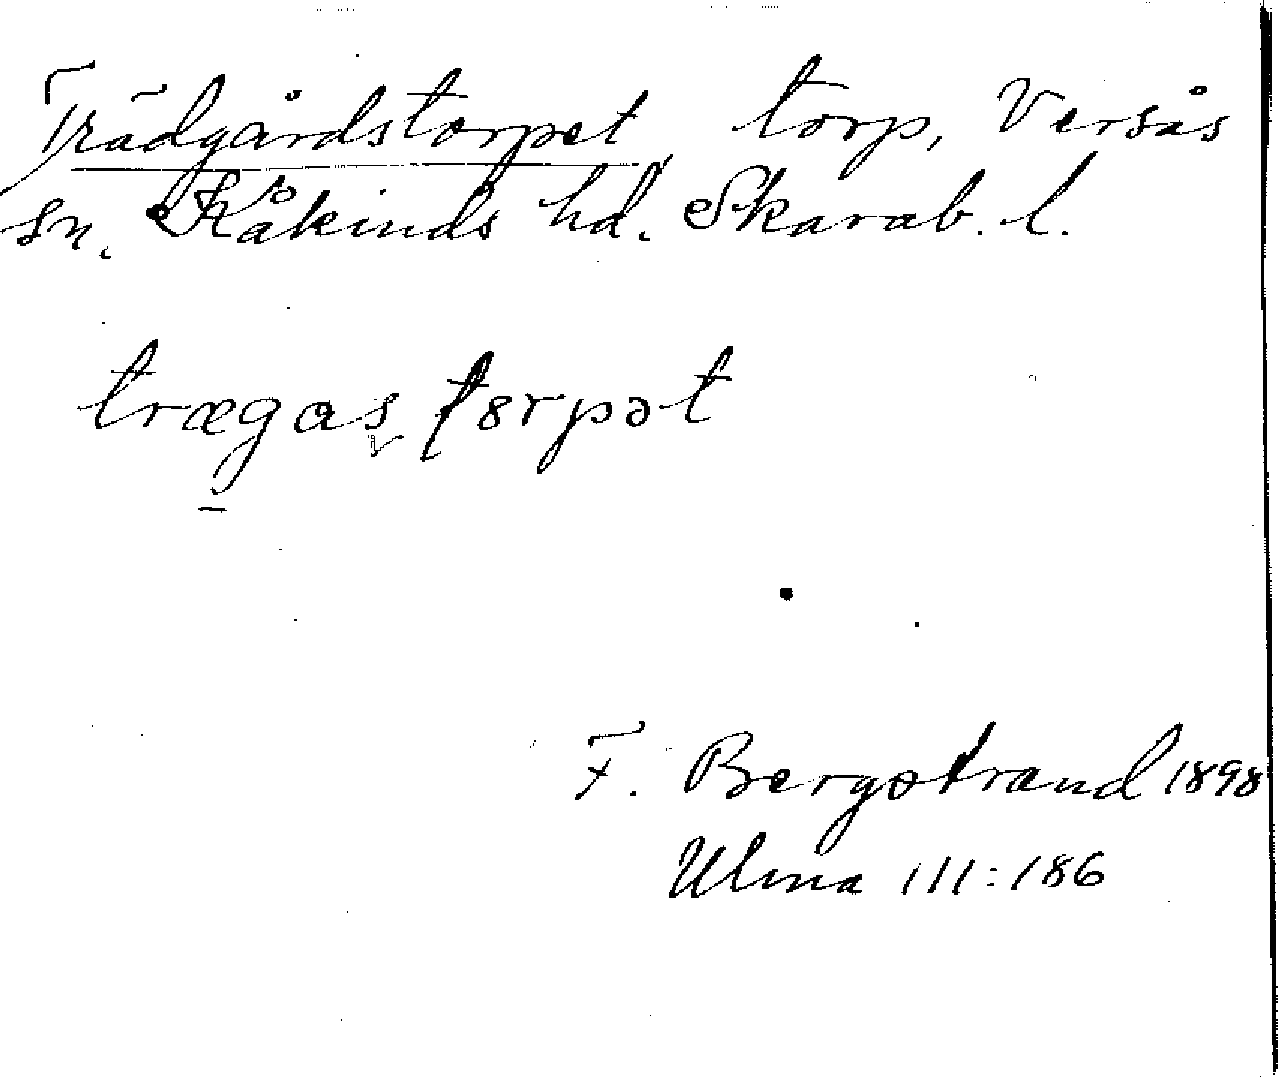 Trädgårdstorpet torp, Versås
sn. Kåkinds hd. Skarab. l.
trægas torpət
F. Bergstrand 1898
Ulma 111:186